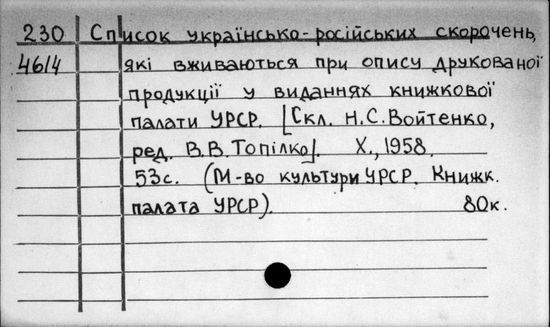 230 Список українсько-російських скорочень,
4614 які вживаються при опису друкованої
продукції у виданнях книжкової
палати УРСР. [Скл. Н.С. Войтенко,
ред. В.В. Топілко]. Х., 1958.
53с. (М-во культури УРСР. Книжк.
палата УРСР). 80к.